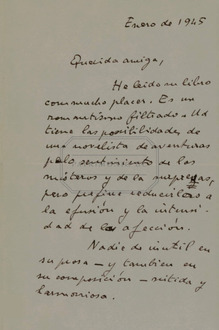 Enero de 1945
Querida amiga,
He leido su libro
con mucho placer. Es un
romantisismo filtrado. Ud
tiene las posibilidades de
una novelista de aventuras
por el sentimiento de los
misterios y de la sorpresa,
pero prefiere reducirlas a
la efusión y la intensi-
dad de la afección.
Nada de inutil en
su prosa - y tambien en
su composición - nitida y
harmoniosa.